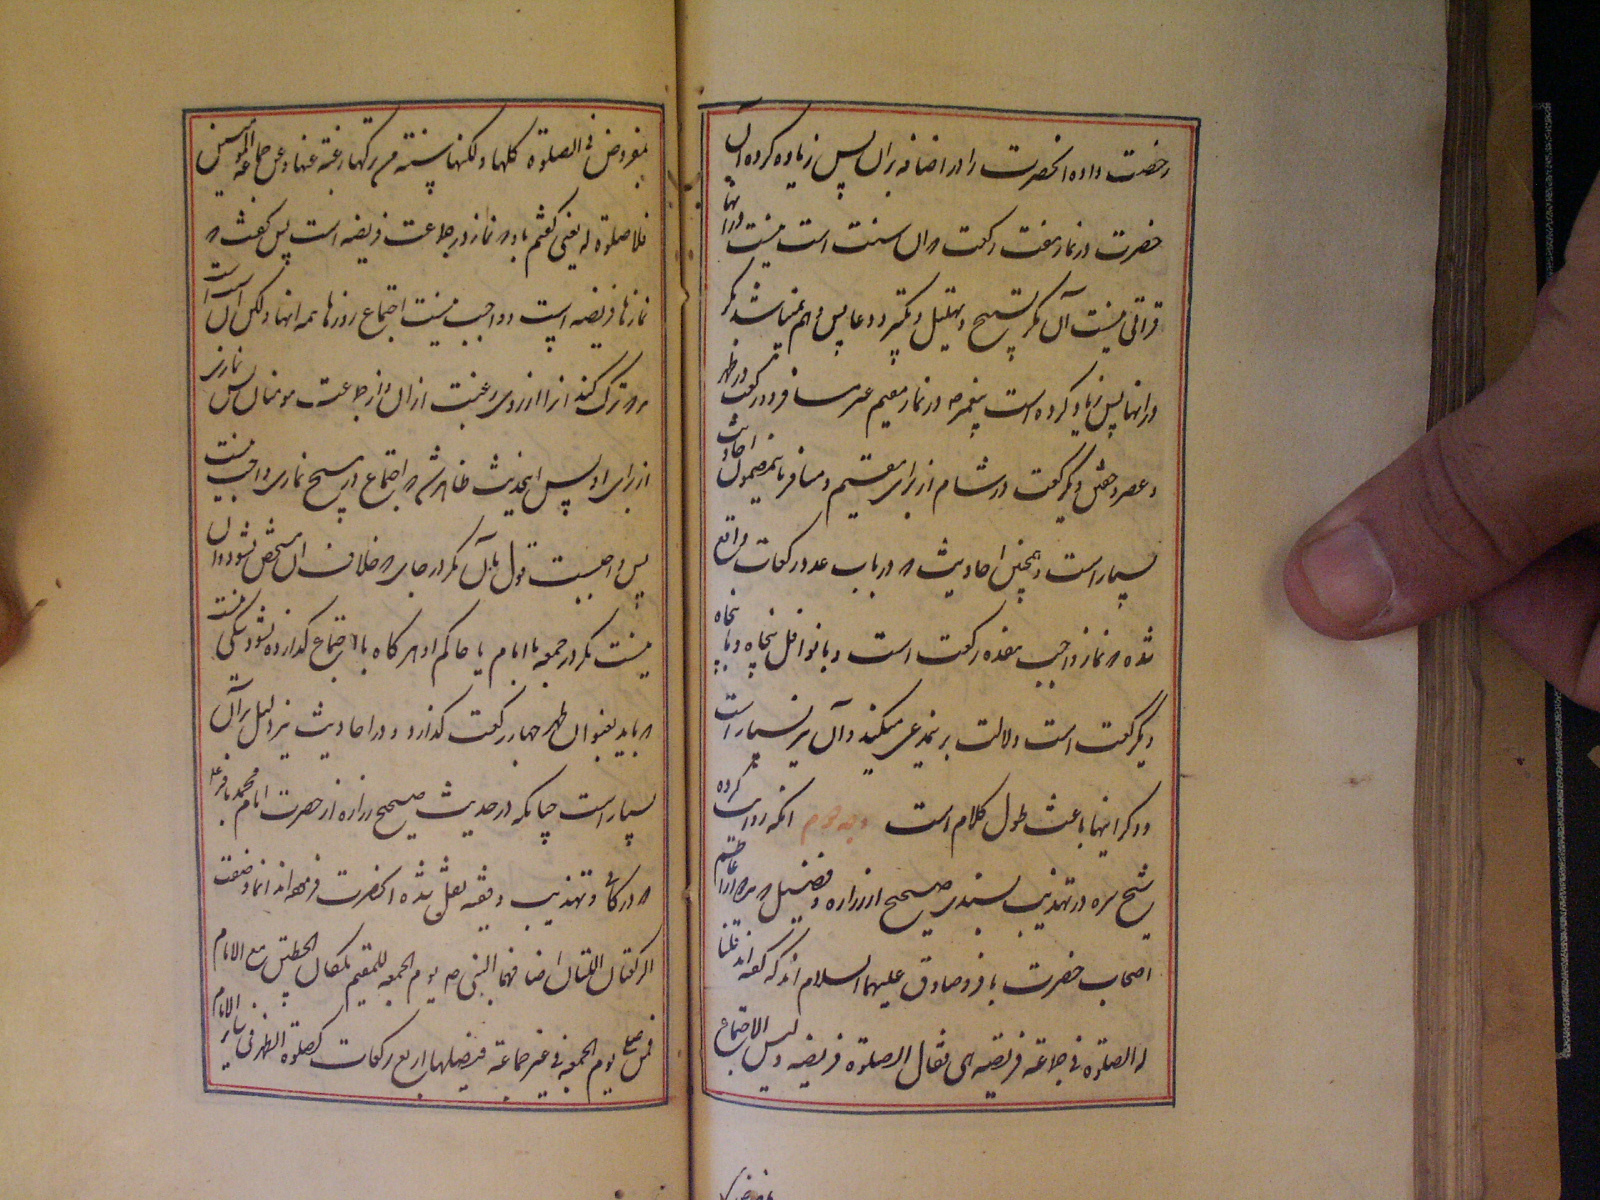 رخصت داده انحضرت را در اضافه بران پس زیاده کرده آن
حضرت در نماز هفت رکعت که ان سنت است نیست در انها
قراتی نیست آن مکر تسبیح و تهلیل و تکبیر و دعا پس وهم نمیباشد مکر
در انها پس زیاد کرده است پیغمبر ص در نماز مقیم غیر مسافر دو رکعت در ظهر
و عصر و خفتن و یکرکعت در شام از برای مقیم و مسافر باینمضمون احادیث
بسیار است و همچنین احادیث که در باب عدد رکعات واقع
شده که نماز واجب هفده رکعت است و با نوافل پنجاه و یا پنجاه
و یکرکعت است دلالت بر مدعی میکند و آن نیز بسیار است
و ذکر اینها باعث طول کلام است وجه دوم انکه روایت کرده
شیخ ره در تهذیب بسندی صحیح از زراره و فضیل که مرادرا از اعاظم
اصحاب حضرت باقر و صادق علیهما السلام اند که کفته اند قلنا
له الصلوة فی جماعة فریضة هی فقال الصلوة فریضه و لیس الاجتماع
بمفروض فی الصلوة کلها و لکنها سنة من ترکها رغبة عنها و عن جماعة المومنین
فلا صلوة له یعنی کفتم باو که نماز در جماعت فریضه است پس کفت که
نمازها فریضه است و واجب نیست اجتماع در نمازها همه انها و لکن آن سنت است
هر که ترک کند انرا از روی رغبت از ان و از جماعت مومنان پس نماز نیست
از برای او پس اینحدیث ظاهر شد که اجتماع در هیچ نمازی واجب نیست
پس واجبست قول بان مکر در جای که خلاف ان مشخص شود و ان
نیست مکر در جمعه با امام یا حاکم او هرکاه با اجتماع کذارده نشود شکی نیست
که باید بعنوان ظهر چهار رکعت کذارد و در احادیث نیز دلیل بر آن
بسیار است چنانکه در حدیث صحیح زراره از حضرت امام محمد باقر ع
که در کافی و تهذیب و فقیه نقل شده انحضرت فرموده اند انما وضعت
الرکعتان اللتان اضافهما النبی ص یوم الجمعه للمقیم لمکان الخطبتین مع الامام
فمن صلی یوم الجمعه فی غیر جماعة فیصلیها اربع رکعات کصلوة الظهر فی سایر الایام